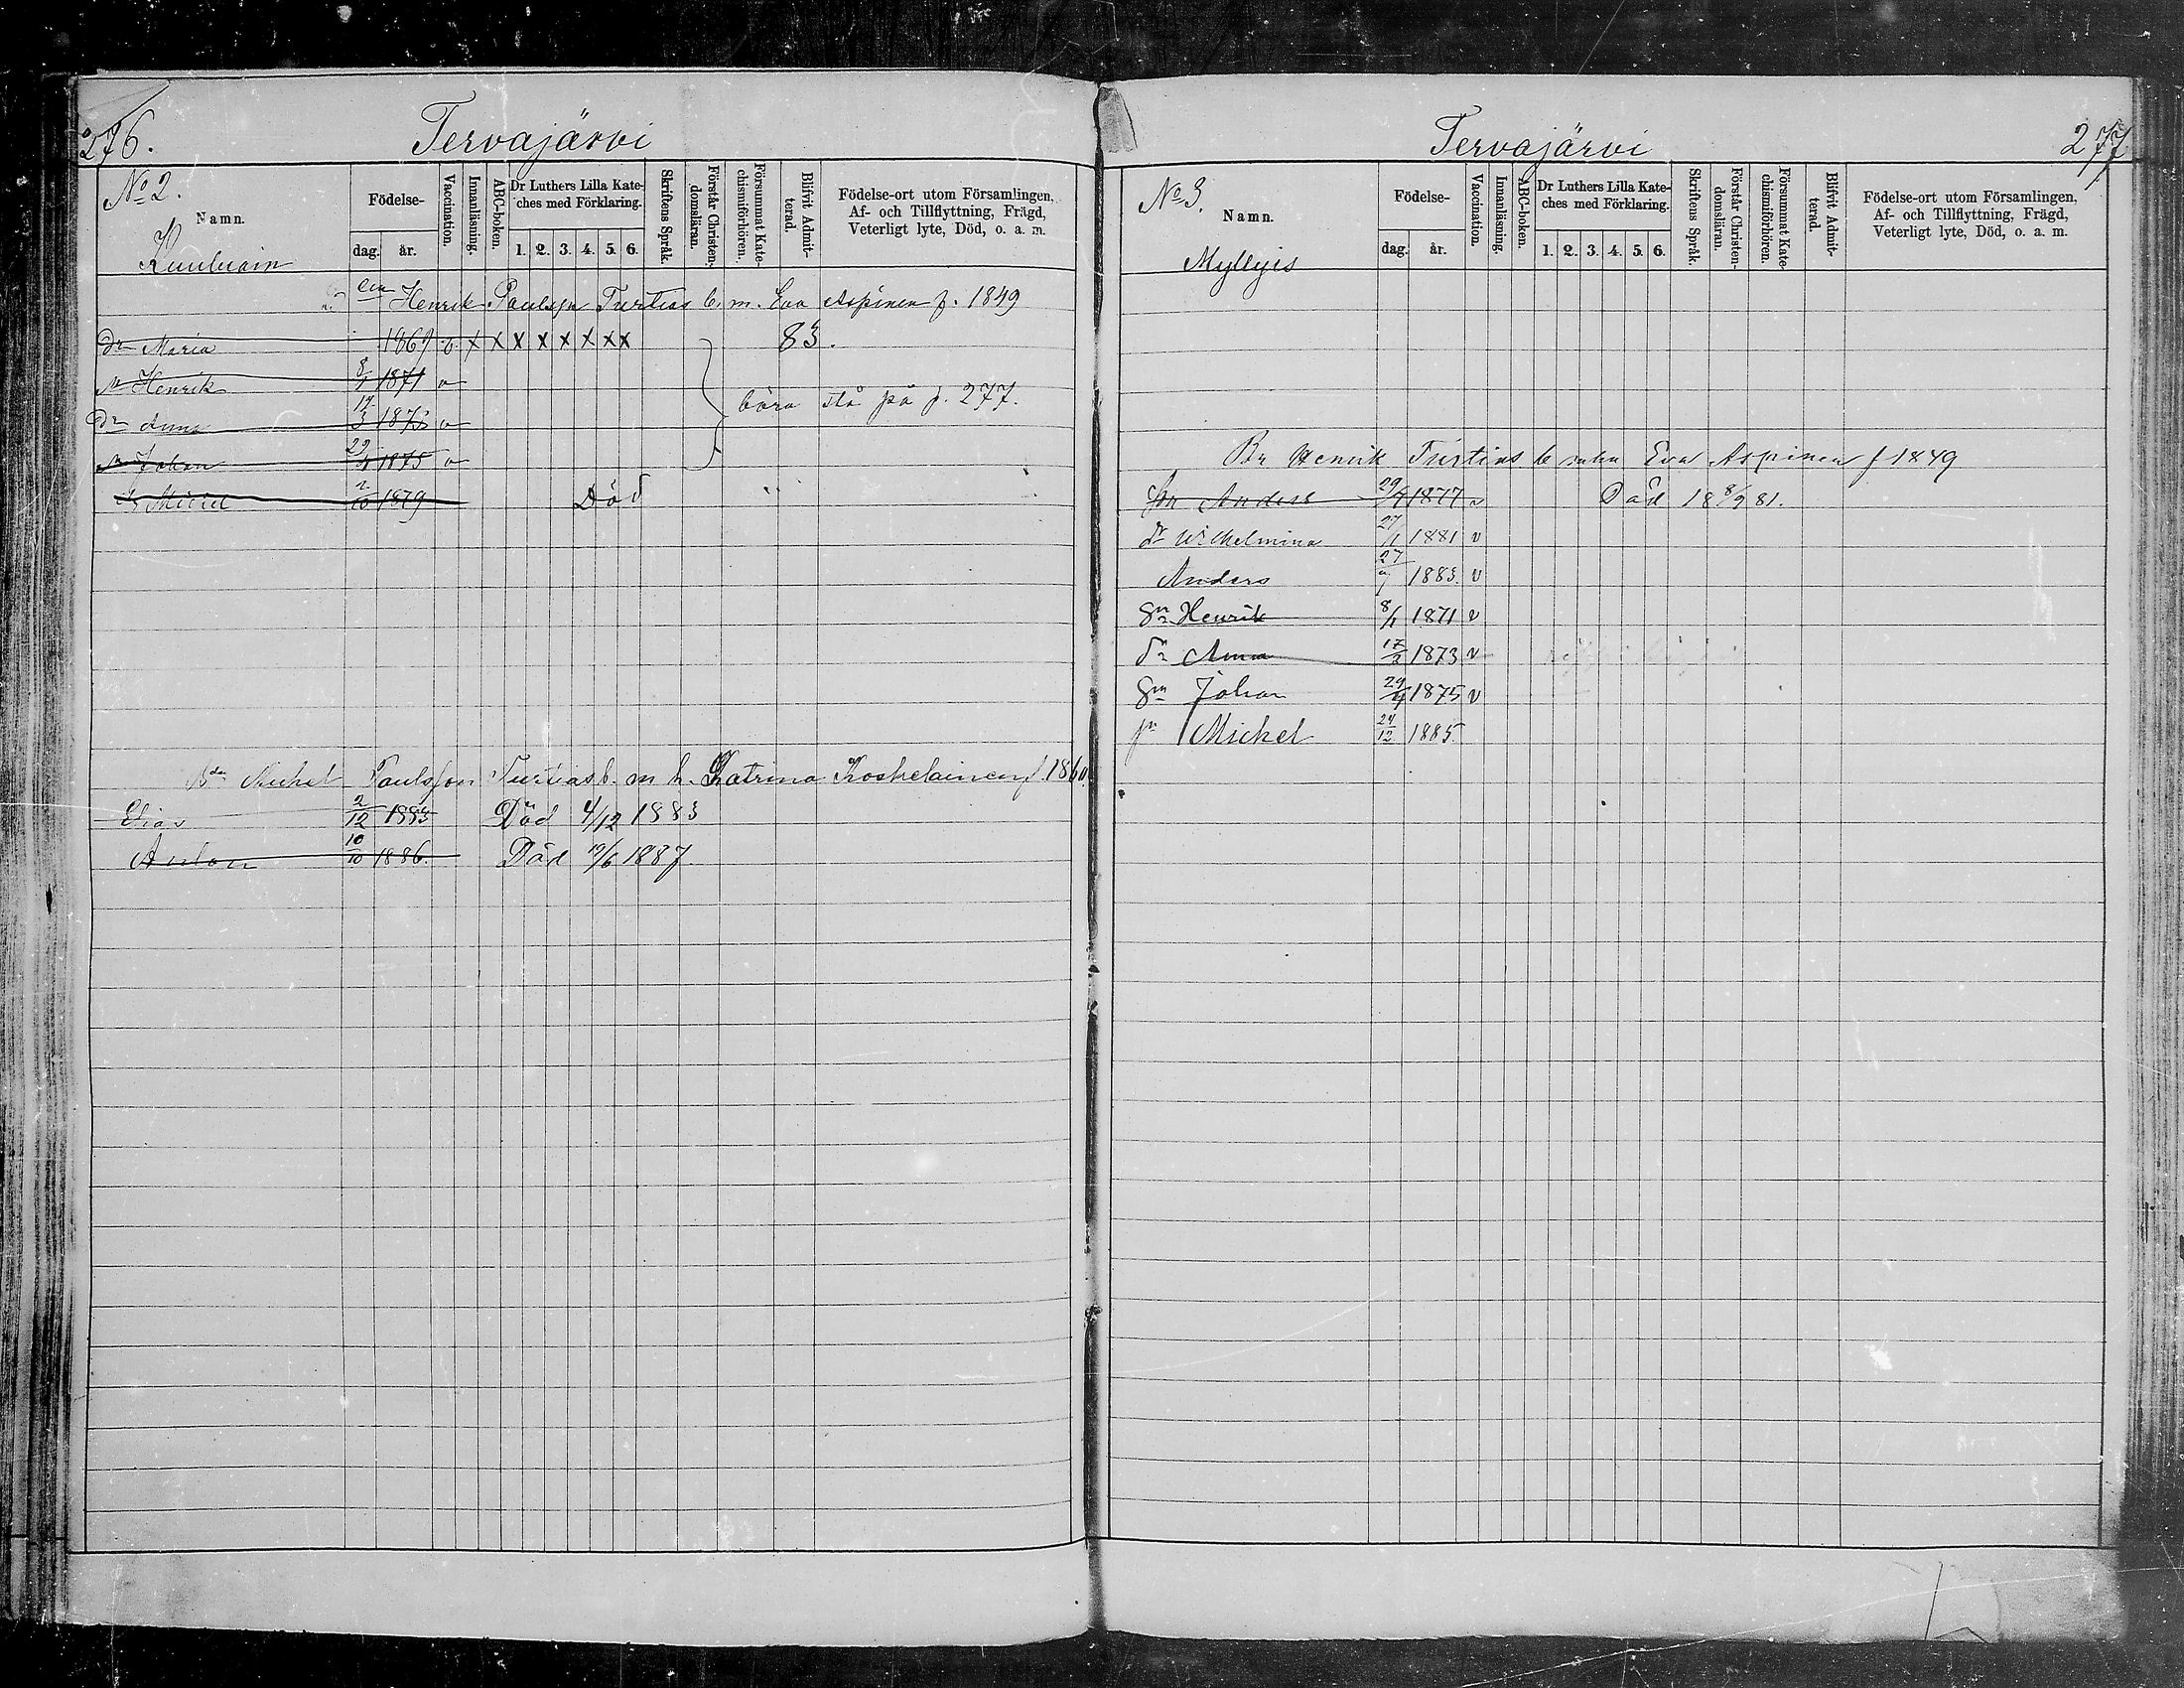 276.
Tervajärvi
No 2.
Namn.
Födelse-
dag. år.
Vaccination.
Innanläsning.
ABC-boken.
Dr Luthers Lilla Kate-
ches med Förklaring.
1. 2. 3. 4. 5. 6.
Skriftens Språk.
Förstår Christen-
domsläran.
Försummat Kate-
chismiförhören.
Blifvit Admit-
terad.
Födelse-ort utom Församlingen,
Af- och Tillflyttning, Frägd,
Veterligt lyte, Död, o. a. m.
Henrik Paulsson Turtias b. m. Eva Aspinen f. 1849
Dr Maria 1867 v x x x x x x x x 83.
Henrik 8/1 1871 v
Dr Anna 17/3 1873 v
böra stå på p. 277.
Johan 29/4 1875 v
Michel 2/10 1879 Död
Michel Paulsson Turtias b. m. h. Katrina Koskelainen f. 1860.
Elias 2/12 1883 Död 4/12 1883
Anton 10/10 1886. Död 19/6 1887
Tervajärvi
277
No 3.
Namn.
Myllyis
Födelse-
dag. år.
Vaccination.
Innanläsning.
ABC-boken.
Dr Luthers Lilla Kate-
ches med Förklaring.
1. 2. 3. 4. 5. 6.
Skriftens Språk.
Förstår Christen-
domsläran.
Försummat Kate-
chismiförhören.
Blifvit Admit-
terad.
Födelse-ort utom Församlingen,
Af- och Tillflyttning, Frägd,
Veterligt lyte, Död, o. a. m.
Br Henrik Turtias b Eva Aspinen f 1849
Anders 29/7 1877 v Död 18 8/9 81.
dr Wilhelmina 27/1 1881 v
Anders 27/7 1883. v
Sn Henrik 8/1 1871 v
dr Anna 17/3 1873 v
Sn Johan 29/4 1875 v
Michel 24/12 1885.